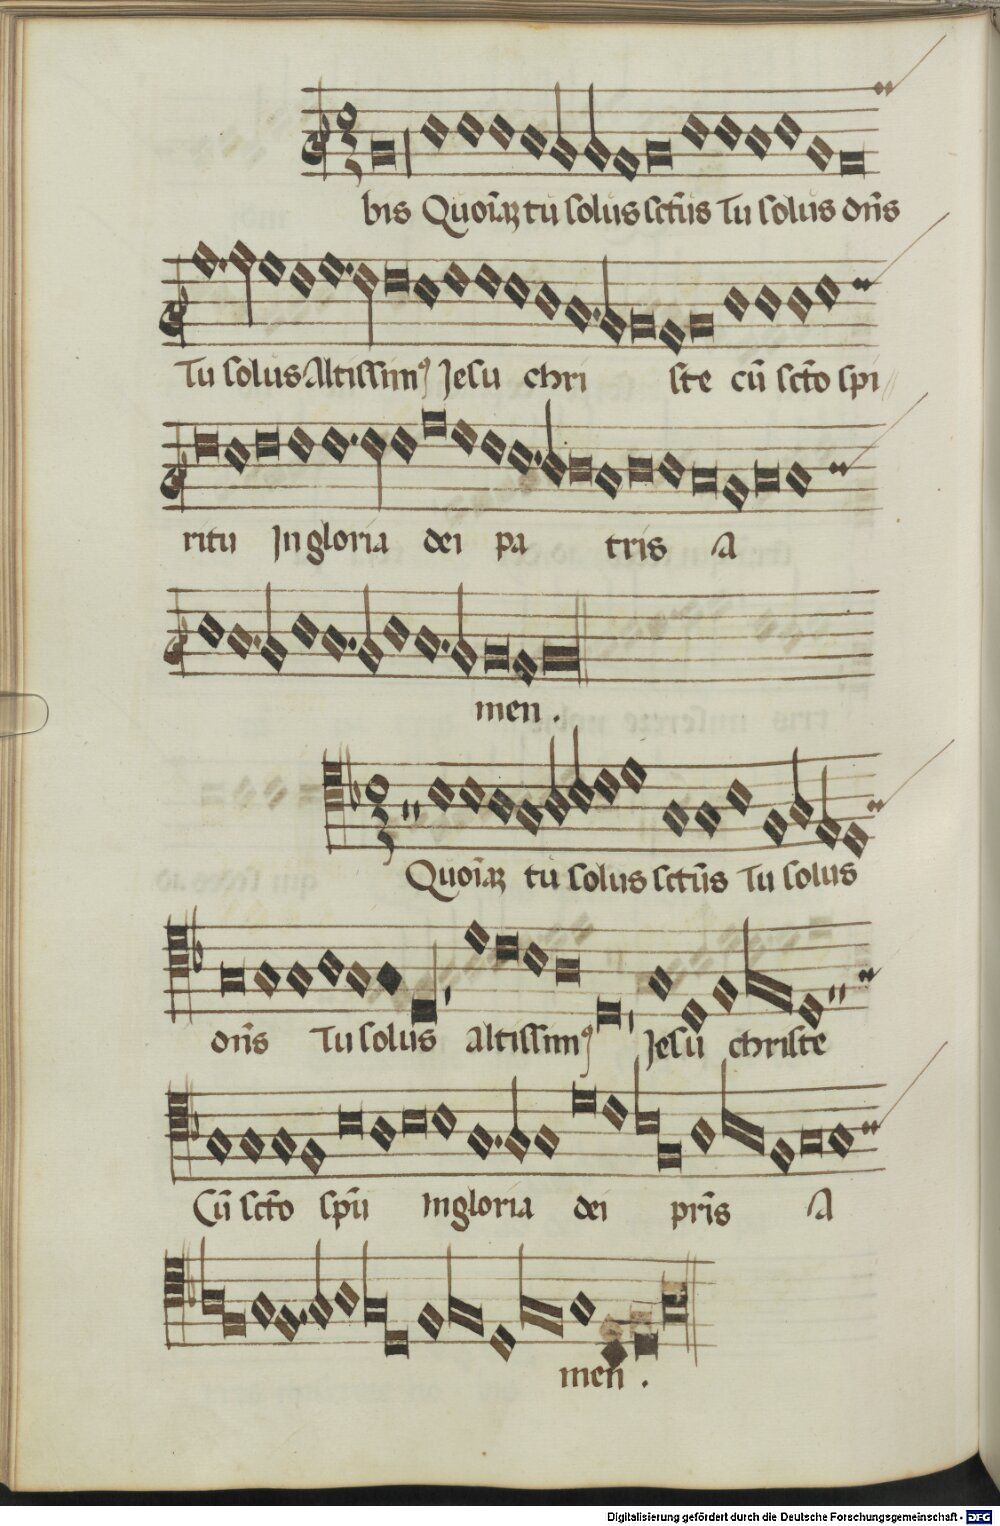 bis Quoīaꝫ tu solus sctūs Tu solus dn̄s
Tu solus Altissimꝰ Jesu chri ste cū sctō spi
ritu In gloria dei pa tris A
men .
Quoīaꝫ tu solus sctūs Tu solus
dn̄s Tu solus altissimꝰ Jesu christe
Cū sctō spū In gloria dei pr̄is A
men .
Digitalisierung gefördert durch die Deutsche Forschungsgemeinschaft - DFG